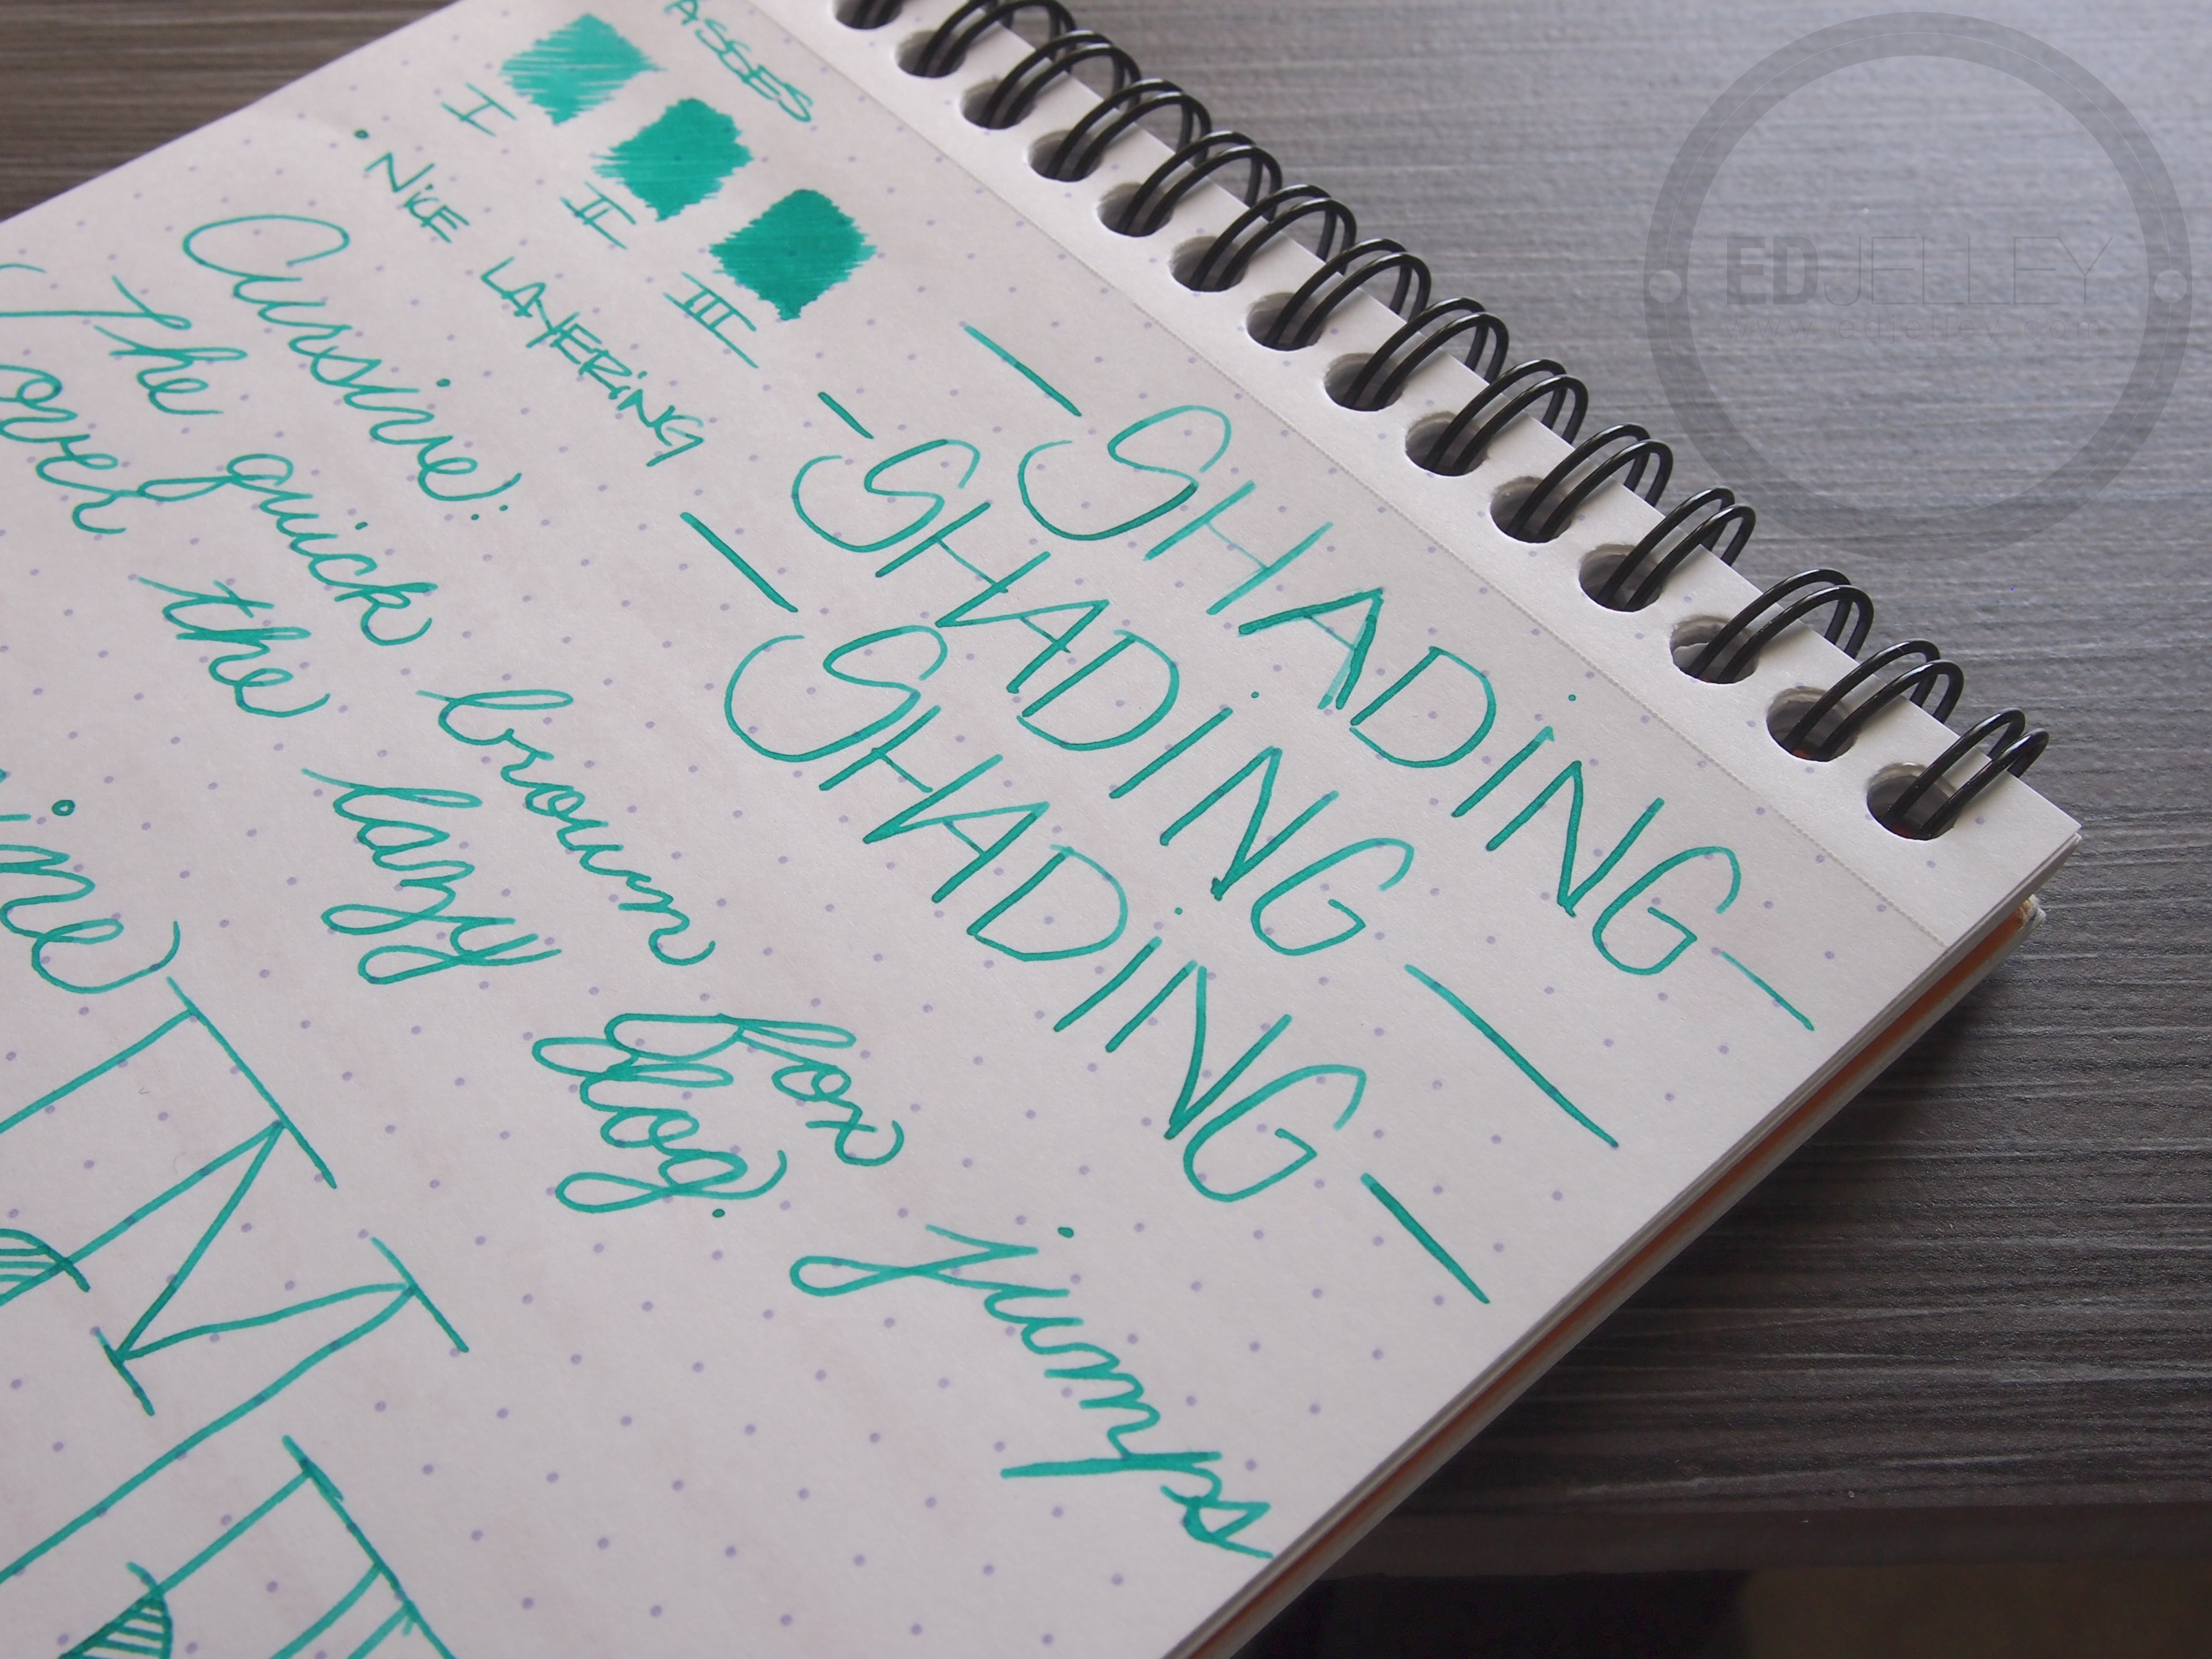 ASSES
I II III
• NICE LAYERING
— SHADING —
- SHADING —
— SHADING —
Cursive:
The quick brown fox jumps
over the lazy dog.
EDJELLEY
www.edjelley.com